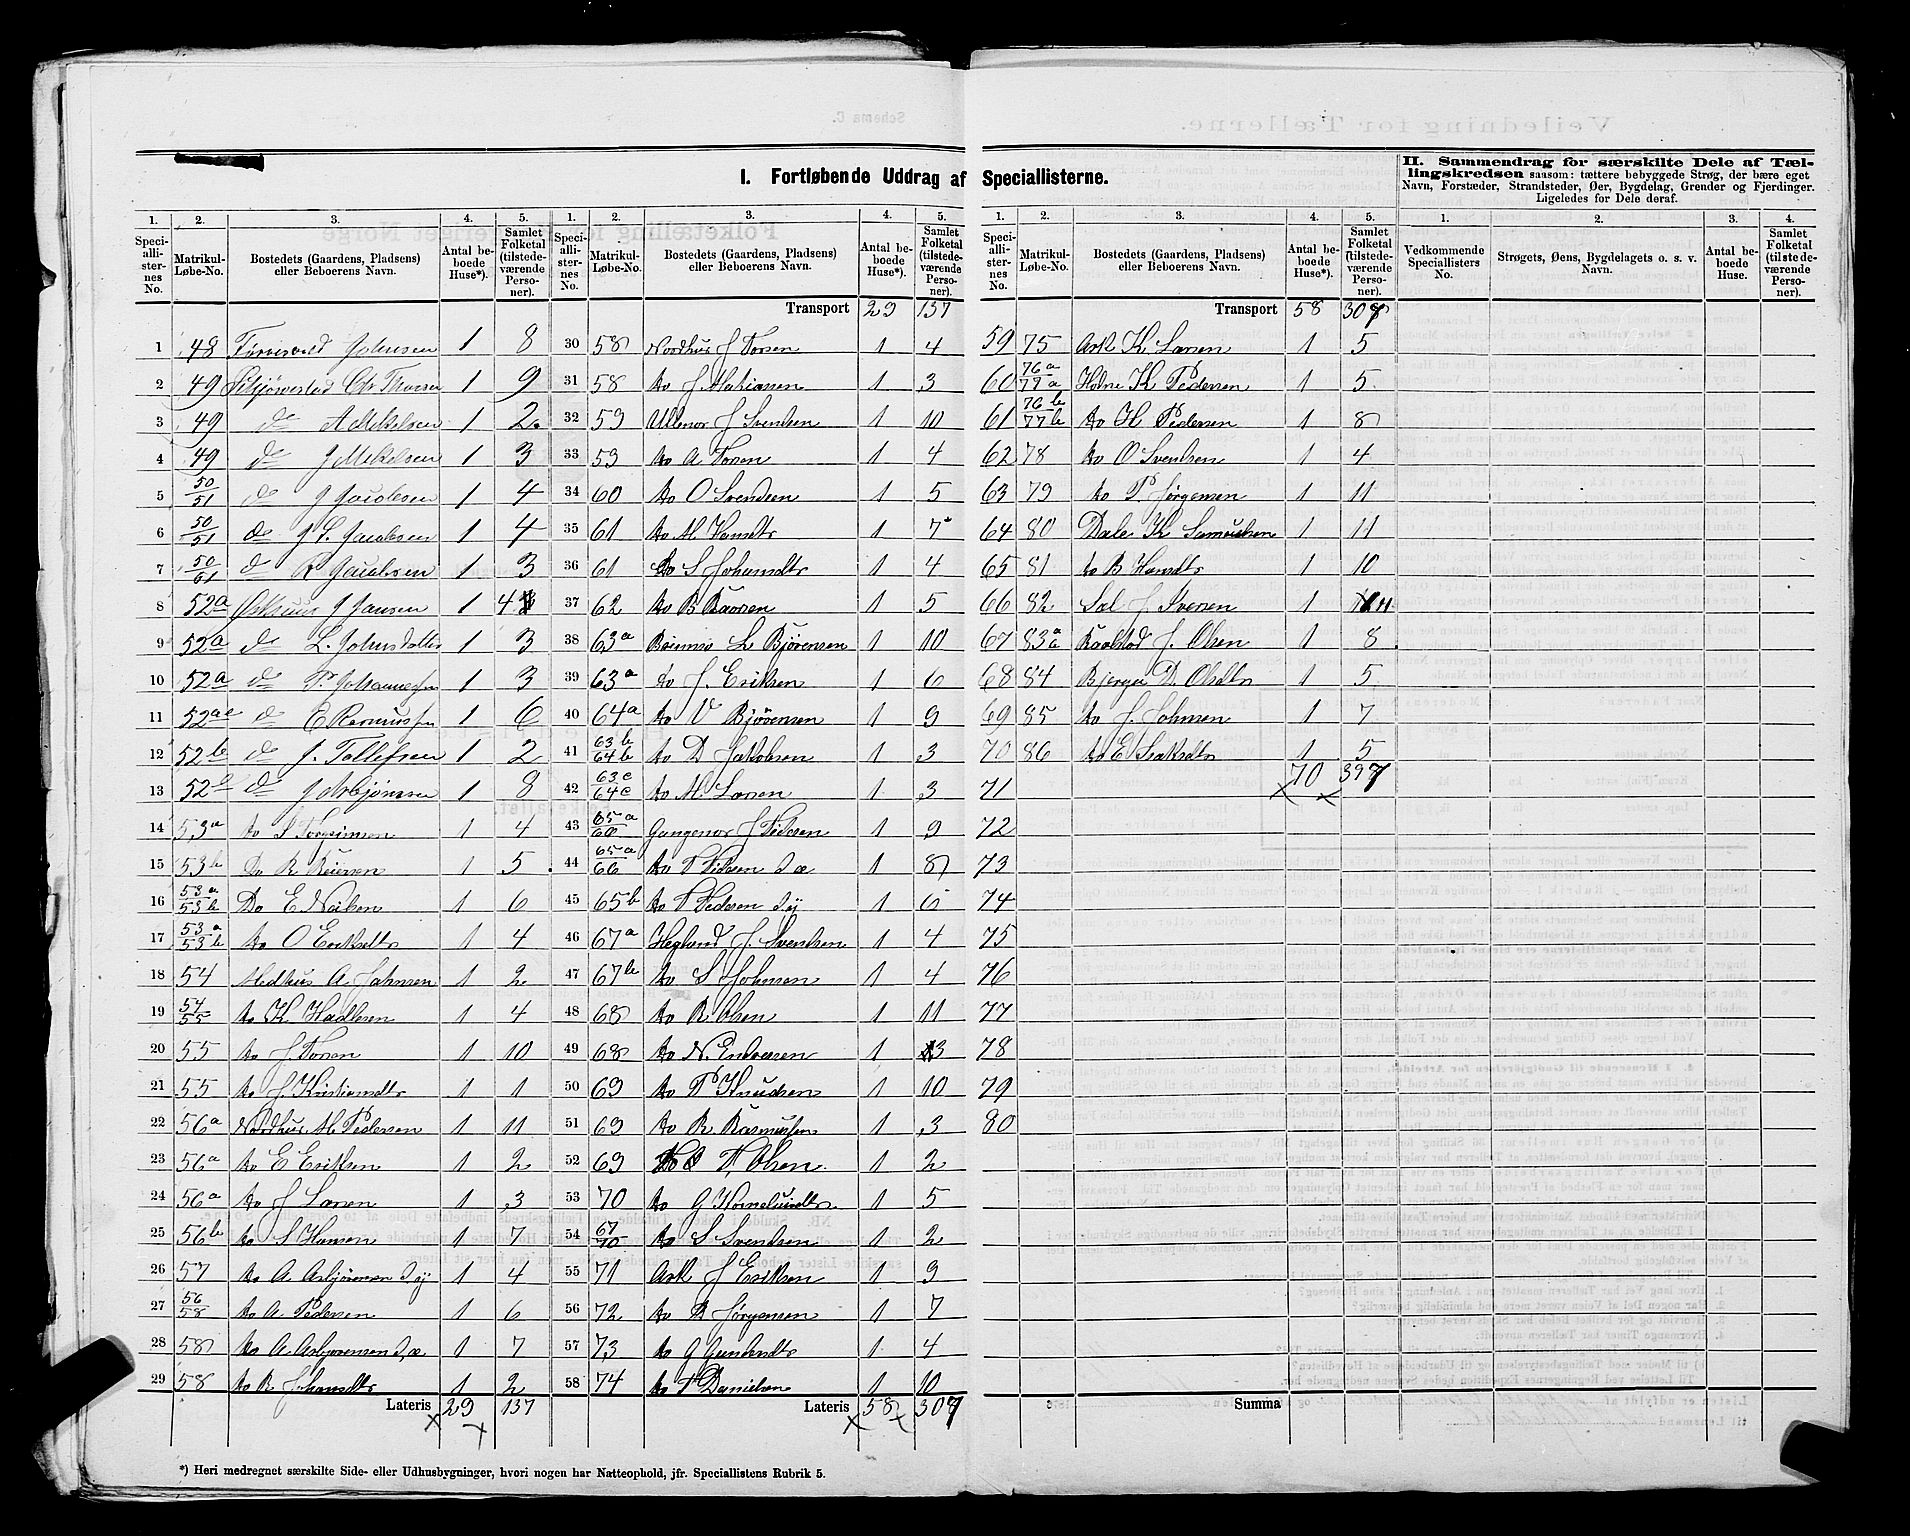 I. Fortløbende Uddrag af Speciallisterne.
II. Sammendrag for særskilte Dele af Tæl-
lingskredsen saasom: tættere bebyggede Strøg, der bære eget
Navn, Forstæder, Strandsteder, Øer, Bygdelag, Grender og Fjerdinger.
Ligeledes for Dele deraf.
1. 2. 3. 4. 5.
Speciallisternes No. Matrikul-Løbe-No. Bostedets (Gaardens, Pladsens) eller Beboerens Navn. Antal beboede Huse*). Samlet Folketal (tilstedeværende Personer).
1 48 Johnsen 1 8
2 49 1 9
3 49 do A Mikelsen 1 2
4 49 do J Mikelsen 1 3
5 50/51 do J Jacobsen 1 4
6 50/51 do J L Jacobsen 1 4
7 do R Jacobsen 1 3
8 52a J Jansen 1 4
9 52a do L. Johnsdatter 1 3
10 52a do P. Johannesen 1 3
11 do E Rasmussen 1 6
12 52b do J. Tollefsen 1 2
13 do J Asbjørnsen 1 8
14 53a do 1 4
15 53b Do R Reiersen 1 5
16 53a/53b Do E Nilsen 1 6
17 53a/53b do O Eriksdtr 1 4
18 54 Medhus A Johnsen 1 2
19 54/55 do K Hadlesen 1 4
20 55 do J Torsen 1 10
21 55 do J. Kristiansdtr 1 1
22 56a Nordhus M Pedersen 1 11
23 56a do E Eriksen 1 2
24 56a do J Larsen 1 3
25 56b do S Hansen 1 7
26 57 do A Asbjørnsen d y 1 4
27 56/58 do A Pedersen 1 6
28 58 do A Asbjørensen d æ 1 7
29 58 do B Johansdtr 1 2
Lateris 29 137
Transport 29 137
30 58 Nordhus J Torsen 1 4
31 58 do J Mathiassen 1 3
32 59 Ullenor J Svendsen 1 10
33 59 do A Torsen 1 4
34 60 do O Svendsen 1 5
35 61 do M Hansdtr 1 7
36 61 do S Johansdtr 1 4
37 62 do B Baarsen 1 5
38 63a L Bjørensen 1 10
39 63a do J. Eriksen 1 6
40 64a do V Bjørensen 1 9
41 63b/64b do D Jakobsen 1 3
42 63c/64c do M. Larsen 1 3
43 65a/66 Gangenor J Pedersen 1 9
44 65a/66 do T Pedersen d æ 1 8
45 65b do T Pedersen d y 1 6
46 67a Hegland J. Svendsen 1 4
47 67b do S Johnsen 1 4
48 68 do R Olsen 1 11
49 68 do N. Endresen 1 3
50 69 do P Knudsen 1 10
51 69 do R Rasmussen 1 3
52 69 Do T Olsen 1 2
53 70 do G Korneliusdtr 1 5
54 67/70 do S Svendsen 1 2
55 71 Ark J Eriksen 1 9
56 72 do D Jørgensen 1 7
57 73 do G Gundersdtr 1 4
58 74 do T Danielsen 1 10
Lateris 58 307
Transport 58 307
59 75 Ark K Larsen 1 5
60 Holme K Pedersen 1 5
61 76b/77b do H Pedersen 1 8
62 78 do O Svendsen 1 4
63 79 do P Jørgensen 1 11
64 80 Dale K Samuelsen 1 11
65 81 do B Hansdtr 1 10
66 82 Sal J Iversen 1 11
67 83 J. Olsen 1 8
68 84 Bjerga D Olsdtr 1 5
69 85 do J. Johnsen 1 7
70 86 do E Isaksdtr 1 5
70 397
71
72
73
74
75
76
77
78
79
80
Summa
1. 2. 3. 4.
Vedkommende Speciallisters No. Strøgets, Øens, Bygdelagets o. s. v. Navn. Antal beboede Huse. Samlet Folketal (tilstedeværende Personer).
*) Heri medregnet særskilte Side- eller Udhusbygninger, hvori nogen har Natteophold, jfr. Speciallistens Rubrik 5.